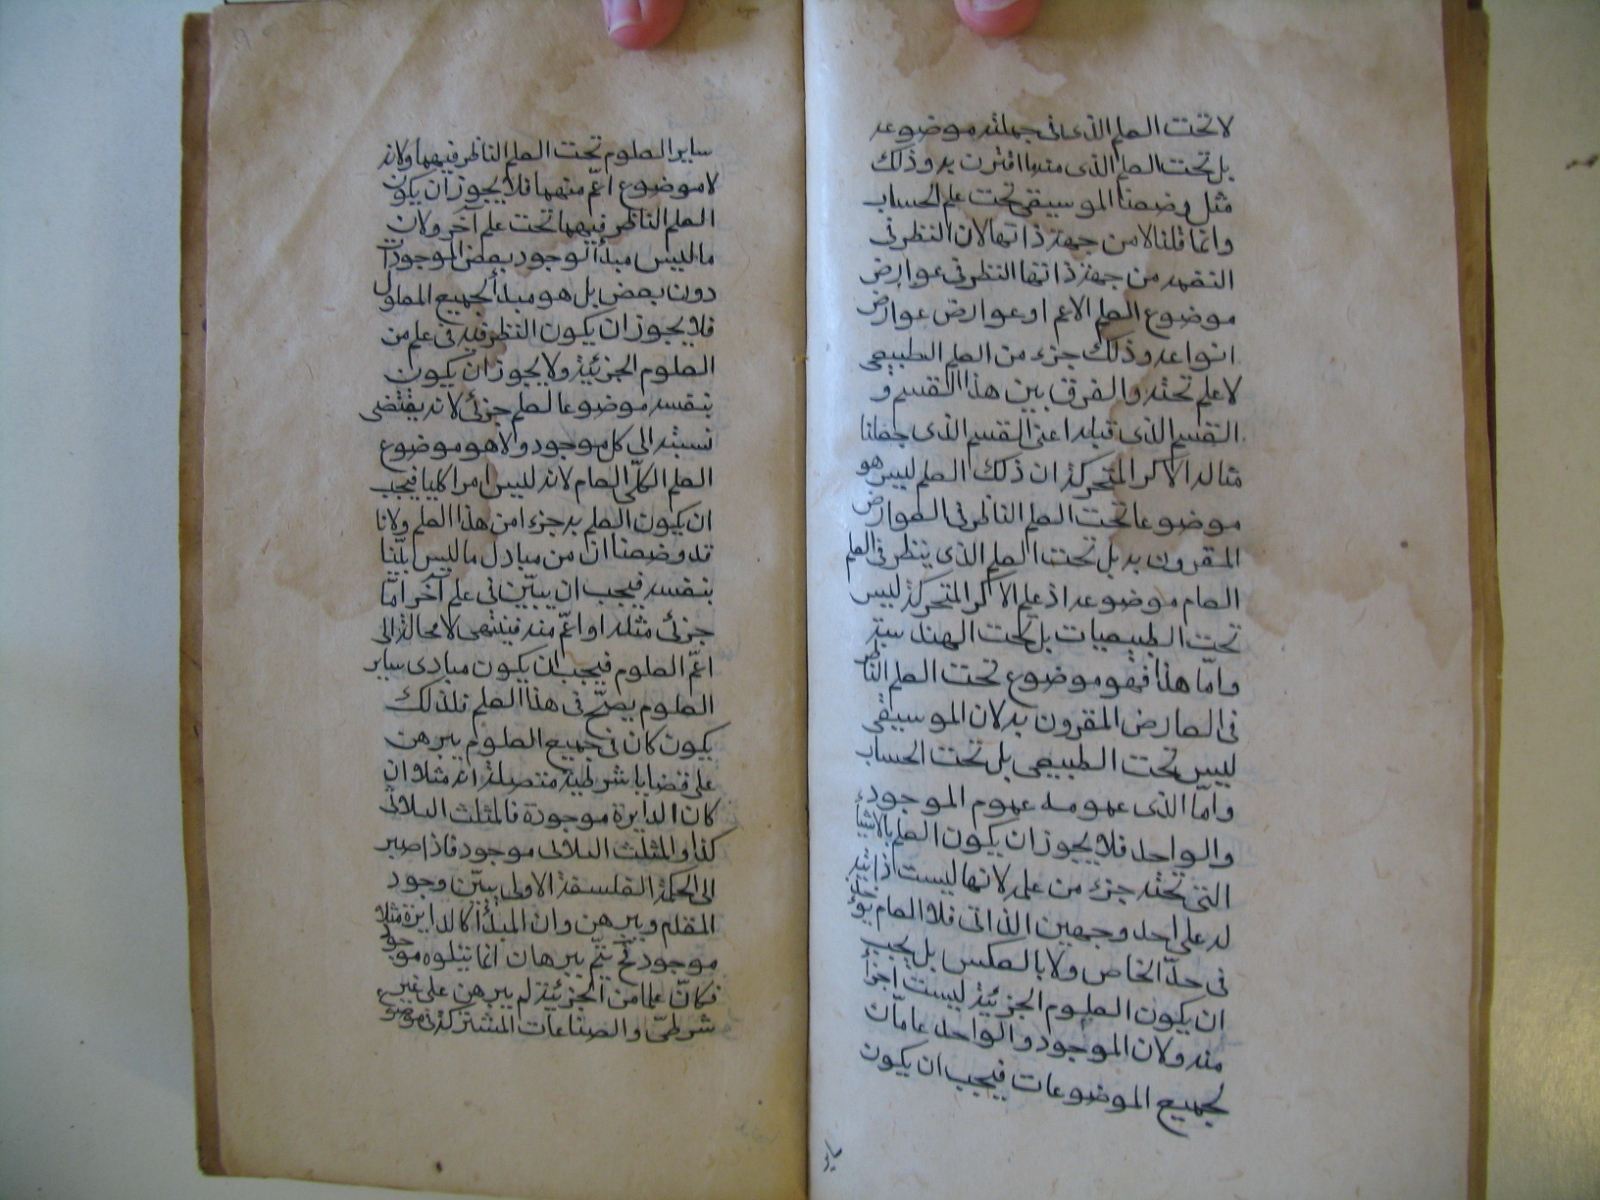 لا تحت العلم الذى فى جملته موضوعه
بل تحت العلم الذى منه ما اقترن به وذلك
مثل وضعنا الموسيقى تحت علم الحساب
وانما قلنا لا من جهة ذاتها لان النظر فى
النغمه من جهة ذاتها النظر فى عوارض
موضوع العلم الاعم او عوارض عوارض
انواعه وذلك جزء من العلم الطبيعى
لا علم تحته والفرق بين هذا القسم و
القسم الذى قبله اعنى القسم الذى جعلنا
مثاله الاكر المتحركة ان ذلك العلم ليس هو
موضوعا تحت العلم الناظر فى العوارض
المقرون به بل تحت العلم الذى ينظر فى العلم
العام موضوعه اذ علم الاكر المتحركة ليس
تحت الطبيعيات بل تحت الهندسة
واما هذا فهو موضوع تحت العلم الناظر
فى العارض المقرون به لان الموسيقى
ليس تحت الطبيعى بل تحت الحساب
واما الذى عمومه عموم الموجود
والواحد فلا يجوز ان يكون العلم بالاشياء
التى تحته جزء من علمه لانها ليست ذاتية
له على احد وجهين الذاتى فلا العام يؤخذ
فى حد الخاص ولا بالعكس بل يجب
ان يكون العلوم الجزئية ليست اجزاء
منه ولان الموجود والواحد عامّان
لجميع الموضوعات فيجب ان يكون
ساير العلوم تحت العلم الناظر فيهما ولانه
لا موضوع اعمّ منهما فلا يجوز ان يكون
العلم الناظر فيهما تحت علم آخر ولان
ما ليس مبدأ لوجود بعض الموجودات
دون بعض بل هو مبدأ لجميع المعلول
فلا يجوز ان يكون النظر فيه فى علم من
العلوم الجزئية ولا يجوز ان يكون
بنفسه موضوعا لعلم جزئى لانه يقتضى
نسبته الى كل موجود ولا هو موضوع
العلم الكلّى العام لانه ليس امرا كليا فيجب
ان يكون العلم به جزءا من هذا العلم ولانا
قد وضعنا ان من مبادى ما ليس بيّنا
بنفسه فيجب ان يبيّن فى علم آخر امّا
جزئى مثله او اعمّ منه فينتهى لا محالة الى
اعمّ العلوم فيجب ان يكون مبادى ساير
العلوم يصحّ فى هذا العلم فلذلك
يكون كان فى جميع العلوم يبرهن
على قضايا شرطية متصلة انه مثلا ان
كان الدايرة موجودة فالمثلث الفلانى
كذا والمثلث الفلانى موجود فاذا صير
الى الحكمة الفلسفة الاولى يبيّن وجود
المقدم ويبرهن وان المبدأ كالدايرة مثلا
موجود فح يتم برهان انما يتلوه موجود
فكانّ علما من الجزئية لم يبرهن على غير
شرطىّ والصناعات المشتركة فى موضوع